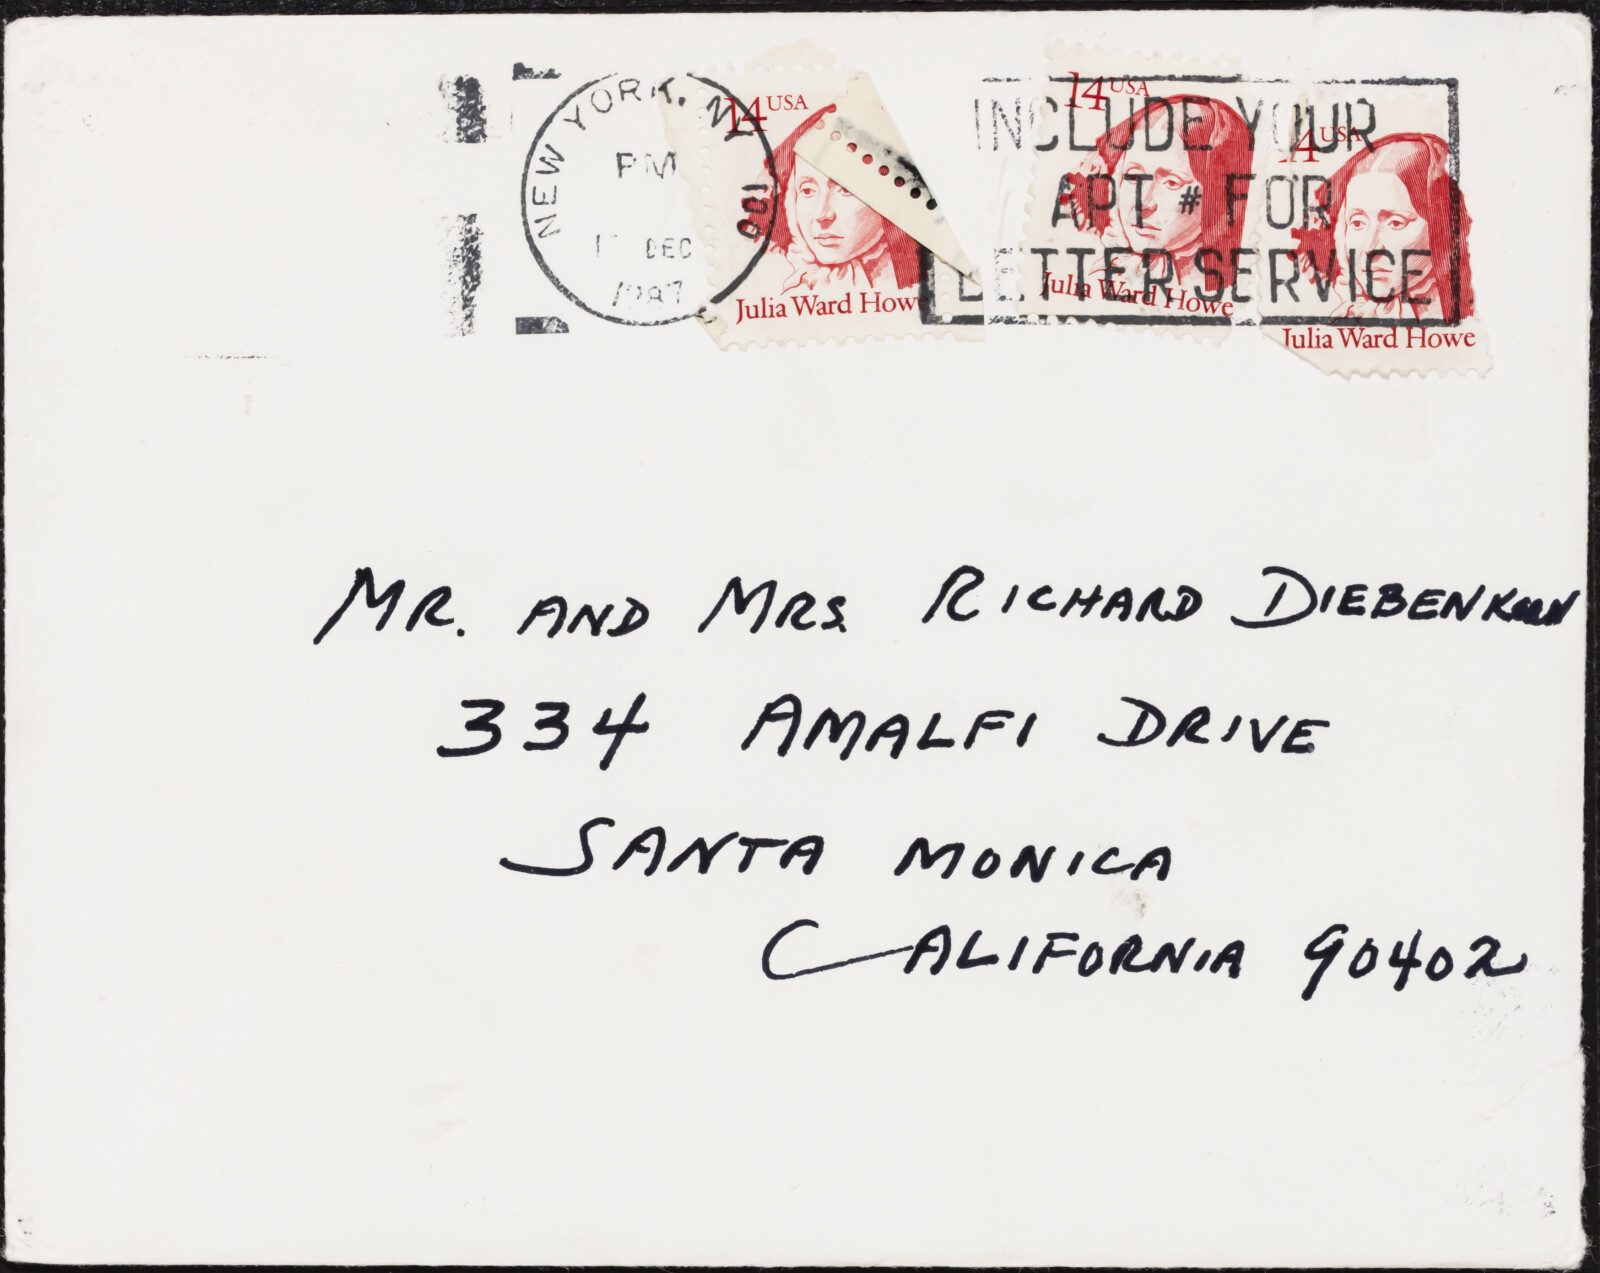 NEW YORK, NY
PM
DEC
1987
001
14 USA
Julia Ward Howe
14 USA
Julia Ward Howe
14 USA
Julia Ward Howe
INCLUDE YOUR
APT # FOR
BETTER SERVICE
MR. AND MRS. RICHARD DIEBENKORN
334 AMALFI DRIVE
SANTA MONICA
CALIFORNIA 90402